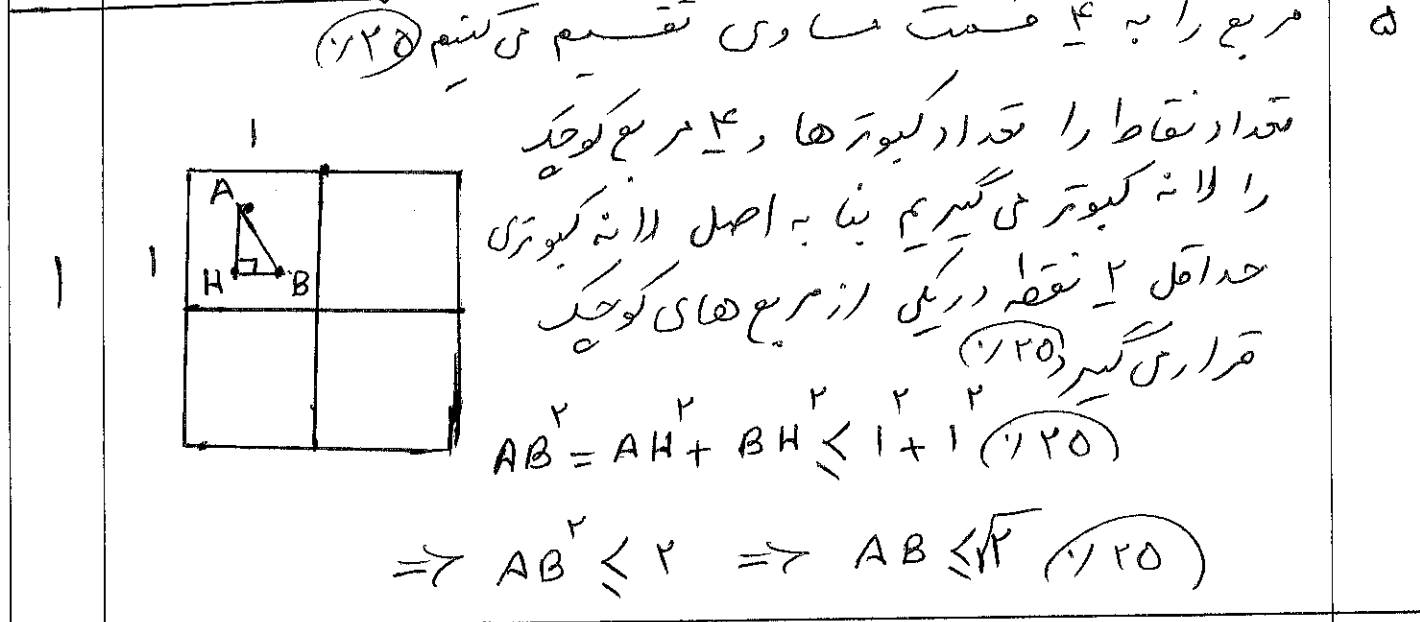 ۵
مربع را به ۴ قسمت مساوی تقسیم می کنیم (۰/۲۵)
تعداد نقاط را تعداد کبوترها و ۴ مربع کوچک
را لانه کبوتر می گیریم بنا به اصل لانه کبوتری
حداقل ۲ نقطه در یکی از مربع های کوچک
قرار می گیرد (۰/۲۵)
AB² = AH² + BH² ≤ 1² + 1² (۰/۲۵)
⇒ AB² ≤ ۲ ⇒ AB ≤ √۲ (۰/۲۵)
۱
۱
A
H
B
۱